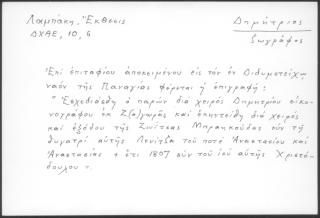 Λαμπάκη, Ἔκθεσις
ΔΧΑΕ, 10, 6
Δημήτριος
ζωγράφος
Ἐπί ἐπιταφίου ἀποκειμένου εἰς τόν ἐν Διδυμοτείχῳ
ναόν τῆς Παναγίας φέρεται ἡ ἐπιγραφή:
"Ἐσχεδιάσθη ὁ παρών διά χειρός Δημητρίου εἰκο-
νογράφου ἐκ Ζ(α)γωρᾶς καί ἐκεντείθη διά χειρός
καί ἐξόδου τῆς Σινίτσας Μπρανκούδας σύν τῇ
θυγατρί αὐτῆς Λενίτζα τοῦ ποτέ Ἀναστασίου καί
Ἀναστασίας + ἔτει 1807 σύν τοῦ υἱοῦ αὐτῆς Χριστο-
δούλου".